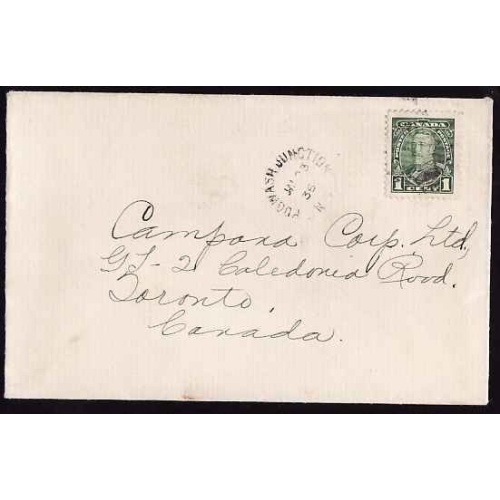 CANADA
1 CENT 1
PUGWASH JUNCTION
23
35
N.S.
Campana Corp. Ltd,
GL-2 Caledonia Road.
Toronto,
Canada.